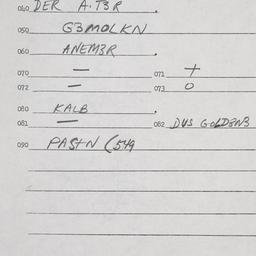 040 DER A.T3R.
050 G3MOLKN
060 ANEM3R.
070 — 071 +
072 — 073 0
080 KALB.
081 — 082 DUS GOLD3N3
090 PASTN (549